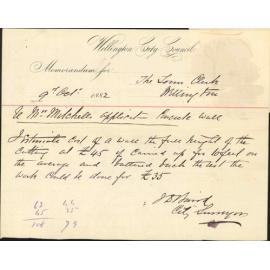 Wellington City Council
Memorandum for
The Town Clerk
9th Octr 1882
Wellington
Re Mrs Mitchell's Application Private wall
I Estimate Cost of a wall the full height of the
Cutting at £45 if carried up for
on the average and battered back the rest the
work could be done for £35
City Surveyor
63 44
45 35
108 79